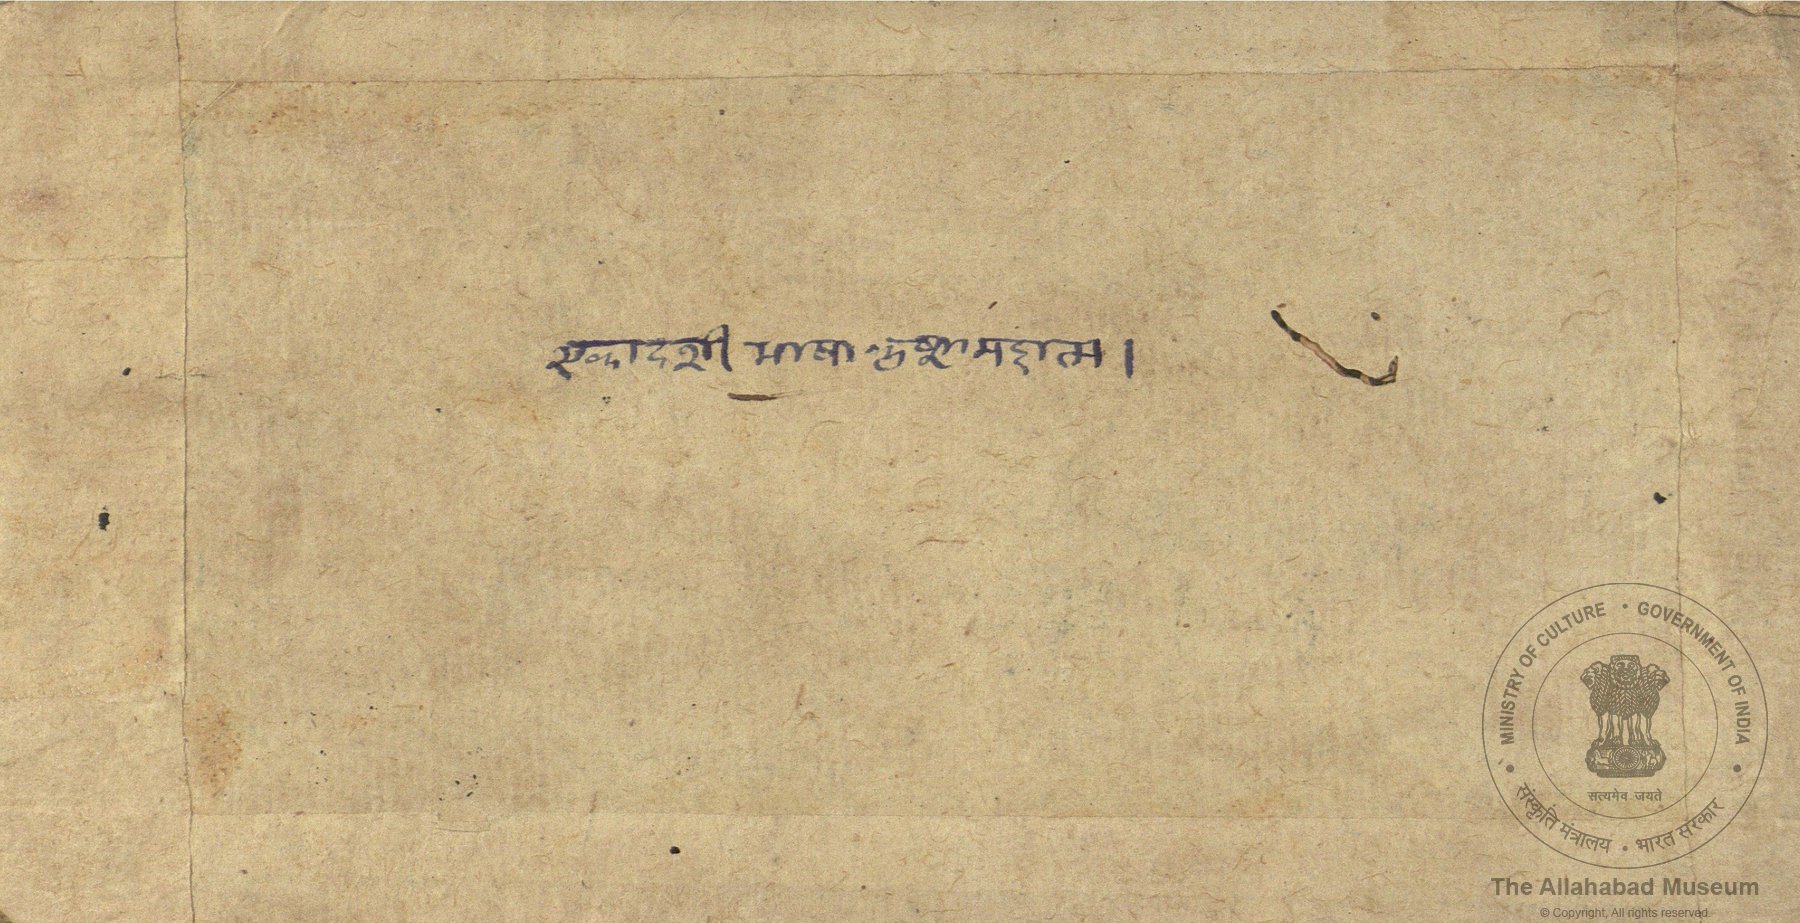 एकादशी भाषा कृष्ण महात्म ।
MINISTRY OF CULTURE • GOVERNMENT OF INDIA
सत्यमेव जयते
संस्कृति मंत्रालय • भारत सरकार
The Allahabad Museum
© Copyright, All rights reserved